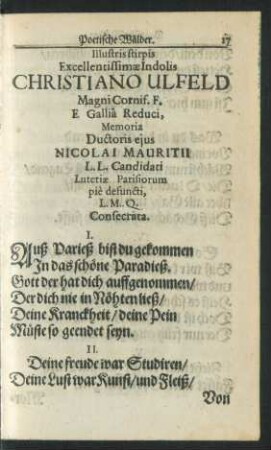 Poetische Wälder. 17
Illustris stirpis
Excellentissimæ Indolis
CHRISTIANO ULFELD
Magni Cornif. F.
E Galliâ Reduci,
Memoria
Ductoris ejus
NICOLAI MAURITII
L. L. Candidati
Lutetiæ Parisiorum
piè defuncti,
L. M. Q.
Consecrata.
I.
Auß Parieß bist du gekommen
In das schöne Paradieß.
Gott der hat dich auffgenommen/
Der dich nie in Nöhten ließ/
Deine Kranckheit/ deine Pein
Müste so geendet seyn.
II.
Deine freude war Studiren/
Deine Lust war Kunst/ und Fleiß/
Von